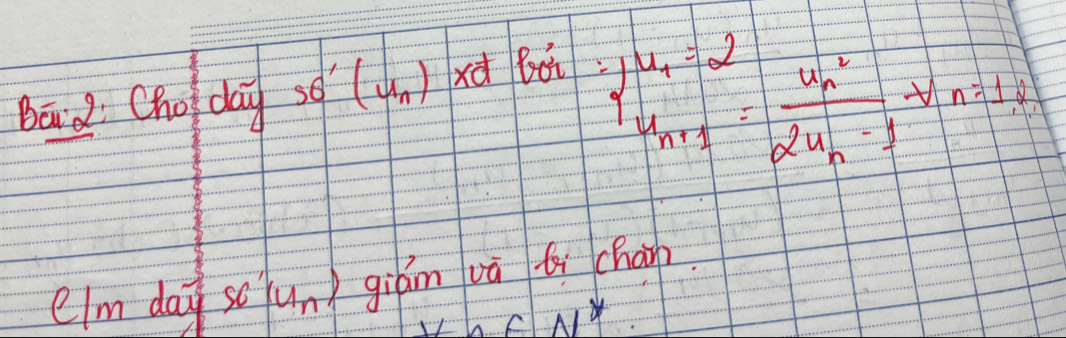 Bài 2: Cho dãy số (uₙ) xđ bởi : { u₁ = 2
uₙ₊₁ = uₙ² / (2uₙ - 1) ∀ n = 1,2,
C/m dãy số (uₙ) giảm và bị chặn.
∀ n ∈ N*.